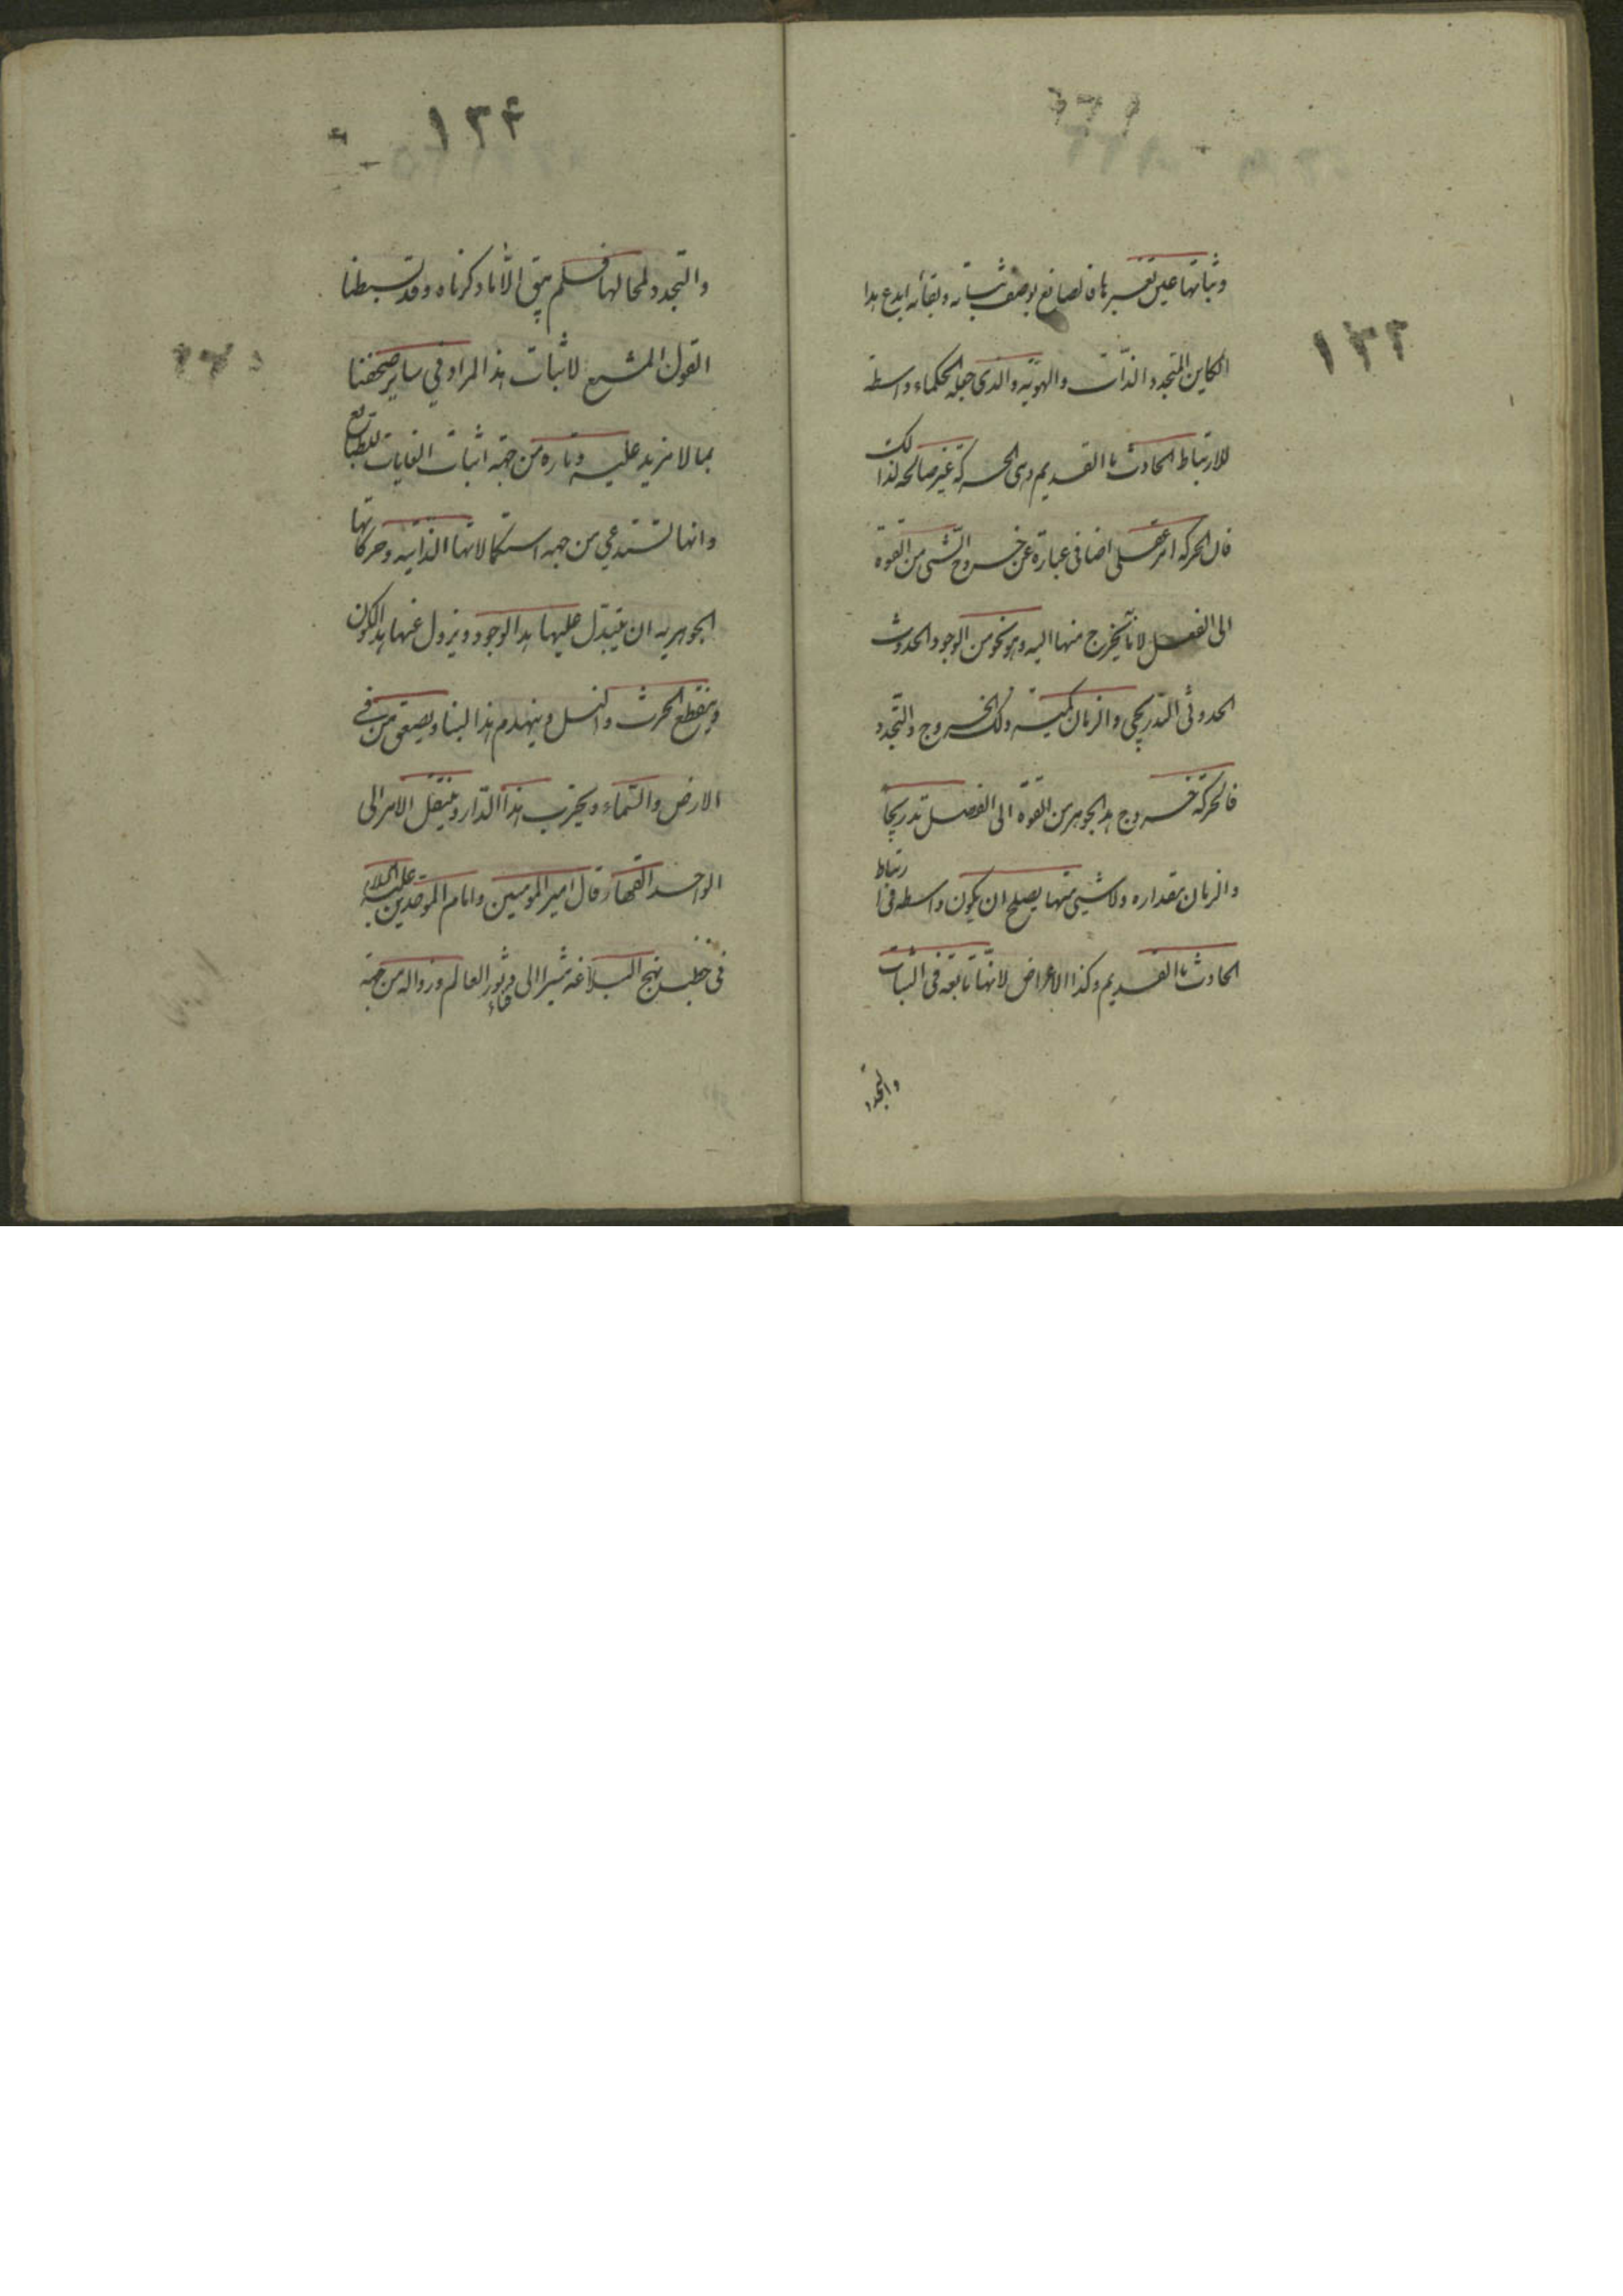 ١٣٣
وثباتها عين تغيرها فالصانع بوصف ثباته وبقائه ابدع هذا
الكاين المتجدد الذّات والهويّة والذى جعله الحكماء واسطة
للارتباط الحادث بالقديم وهى الحركة غير صالحة لذالك
فان الحركة امر عقلى اضافى عبارة عن خروج الشئ من القوة
الى الفعل لا ما يخرج منها اليه وهو نحو من الوجود الحدوث
الحدوثى التدريجى والزمان كمية ذلك الخروج والتجدد
فالحركة خروج هذا الجوهر من القوة الى الفعل تدريجا
والزمان مقداره ولا شيئ منها يصلح ان يكون واسطه فى ارتباط
الحادث بالقديم وكذا الاعراض لانّها تابعة فى الثبات
والتجدد
١٣۴
والتجدد لمحالها فلم يبق الّا ما ذكرناه وقد بسطنا
القول المشبع لاثبات هذا المراد فى ساير صحفنا
بما لا مزيد عليه وتاره من جهة اثبات الغايات للطبائع
وانها تستدعى من جهه استكمالاتها الذاتيه وحركاتها
الجوهريه ان يتبدل عليها هذا الوجود ويزول عنها هذا الكون
وينقطع الحرث والنسل وينهدم هذا البنا ويصعق من فى
الارض والسّماء ويخرب هذا الدّار وينتقل الامر الى
الواحد القهار قال امير المومنين وامام الموحدين عليه السلام
فى خطب نهج البلاغه مشيرا الى دثور العالم وزواله من جهة